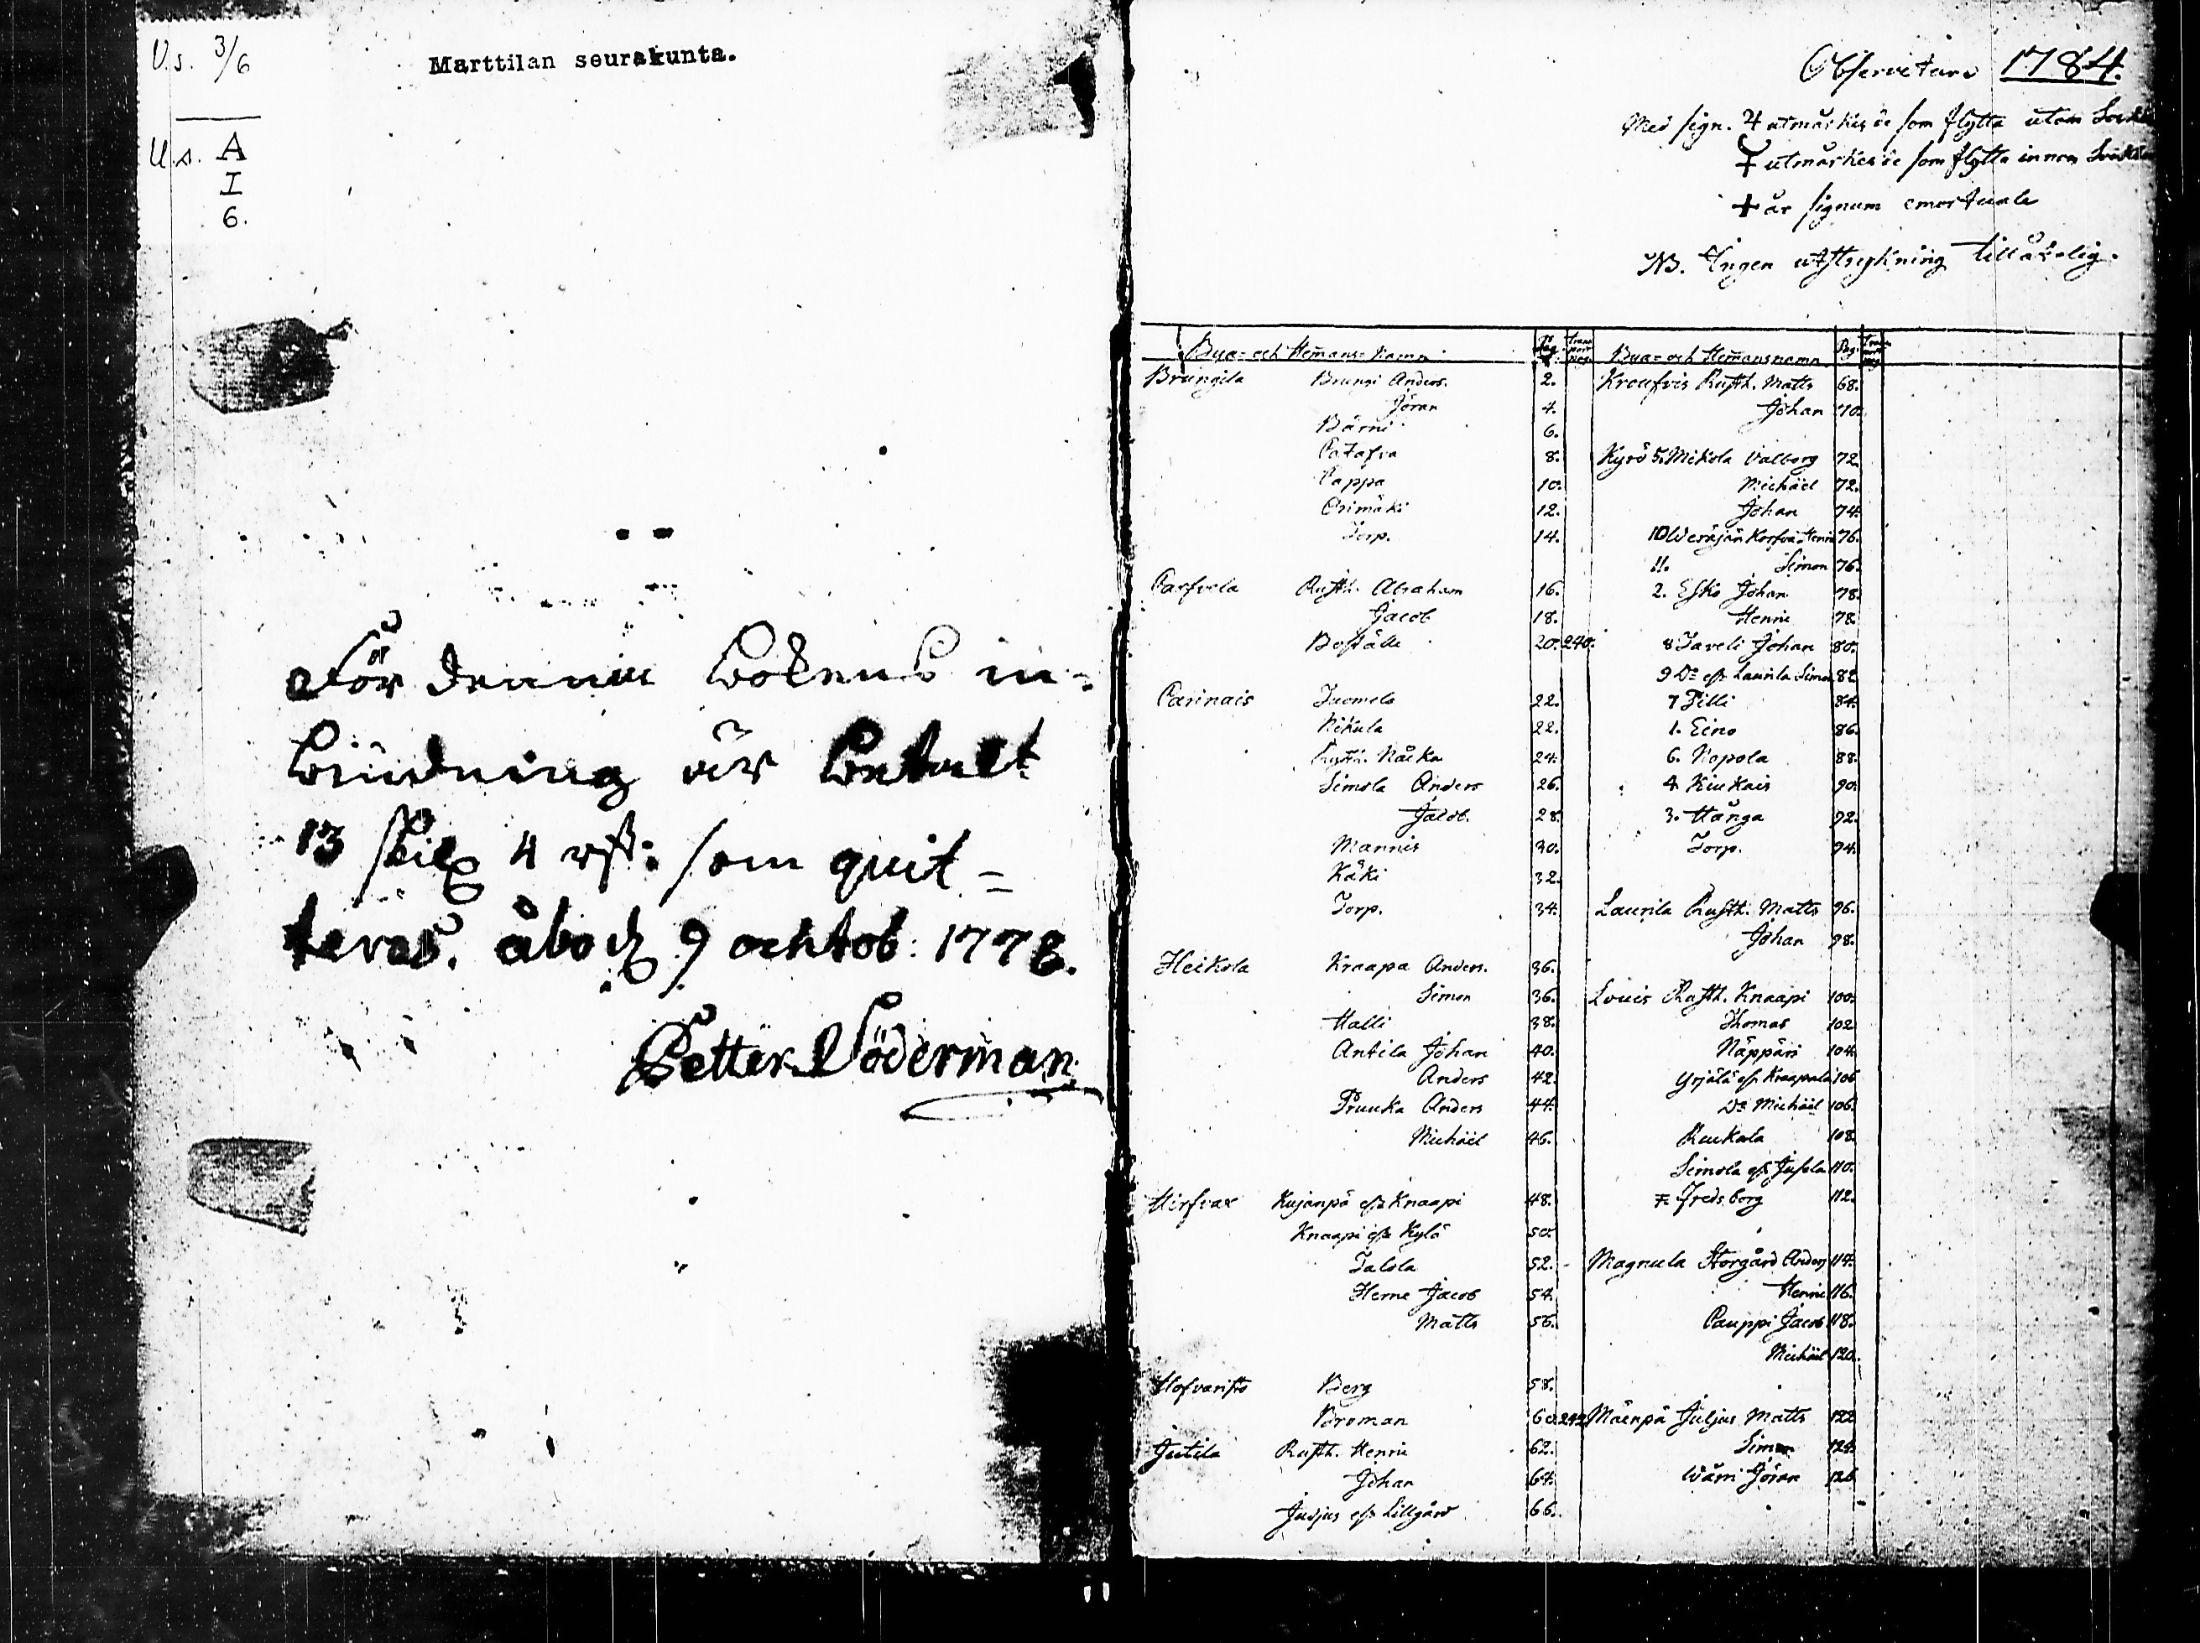 V.s. 3/6
U.s. A
I
6.
Marttilan seurakunta.
För denna bokens in-
bindning är betalt
13 skil 4 rst: som quit=
teras. åbo d 9 ochtob: 1778.
Petter Söderman
Observetur 1784.
Med sign. ♃ utmärkes de som flytta utom
♀ utmärkes de som flytta innom
+ är signum emortuale
NB. Ingen utstrykning tillåtelig.
Bya- och Hemans-Namn
Brungila Brungi Anders. 2.
Jöran 4.
Bärni 6.
8.
Pappa 10.
Orimäki 12.
Torp. 14.
Carfvela Rusth. Abraham 16.
Jacob 18.
Boställe 20. 240.
Carinais Tuomola 22.
Nikula 22.
Rusth. Näcka 24.
Simola Anders 26.
Jacob. 28.
Mannis 30.
Käki 32.
Torp. 34.
Heikola Knaapa Anders. 36.
Simon 36.
Halli 38.
Antila Johan 40.
Anders 42.
Pruuka Anders 44.
Michäel 46.
Hirfvax Kujanpä els Knaapi 48.
Knaapi els Kylä 50.
Talola 52.
Heme Jacob 54.
Matts 56.
Hofvaristo Berg 58.
Boroman 60. 242
Jutila Rusth. Henric 62.
Johan 64.
Judjus els Lillgård 66.
Bya- och Hemansnamn Pag.
Kroufvis Rusth. Matts 68.
Johan 70.
Kyrö 5. Mikola Valborg 72.
Michäel 72.
Johan 74.
10 Weräjän Korfva Henric 76.
11. Simon 76.
2. Esko Johan 78.
Henric 78.
8 Taveli Johan 80.
9 Do els Laurila Simon 82
7 Pilli 84.
1. Eino 86.
6. Nopola 88.
4 Kiukais 90.
3. Hånga 92.
Torp. 94.
Laurila Rusth. Matts 96.
Johan 98.
Louis Rusth. Knaapi 100.
Thomas 102
Näppäri 104
Yrjälä els Knaapala 106
Do Michäel 106.
108.
Simola els Jusola 110.
Fredsborg 112.
Magnula Storgård Anders 114.
Henric 116.
Pauppi Jacob 118.
Michäel 120.
Mäenpä Juljus Matts 122
Simon 124.
Wärri Jöran 126